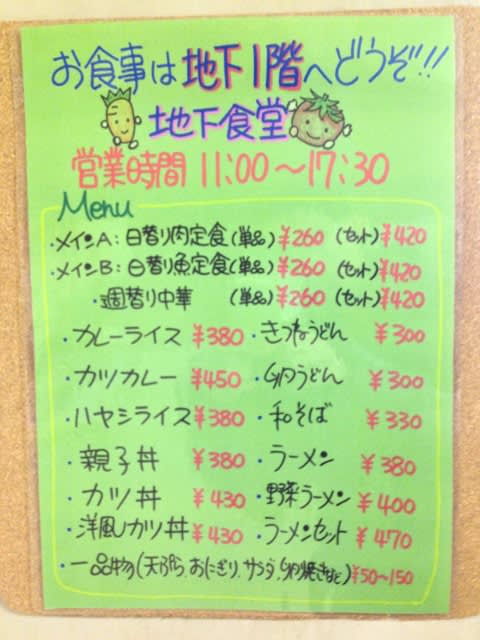 お食事は地下1階へどうぞ!!
地下食堂
営業時間 11:00〜17:30
Menu
・メインA:日替り肉定食(単品)¥260 (セット)¥420
・メインB:日替り魚定食(単品)¥260 (セット)¥420
・週替り中華 (単品)¥260 (セット)¥420
・カレーライス ¥380 ・きつねうどん ¥300
・カツカレー ¥450 ・卵うどん ¥300
・ハヤシライス ¥380 ・和そば ¥330
・親子丼 ¥380 ・ラーメン ¥380
・カツ丼 ¥430 ・野菜ラーメン ¥400
・洋風カツ丼 ¥430 ・ラーメンセット ¥470
・一品物(天ぷら、おにぎり、サラダ、卵焼きなど)¥50~150